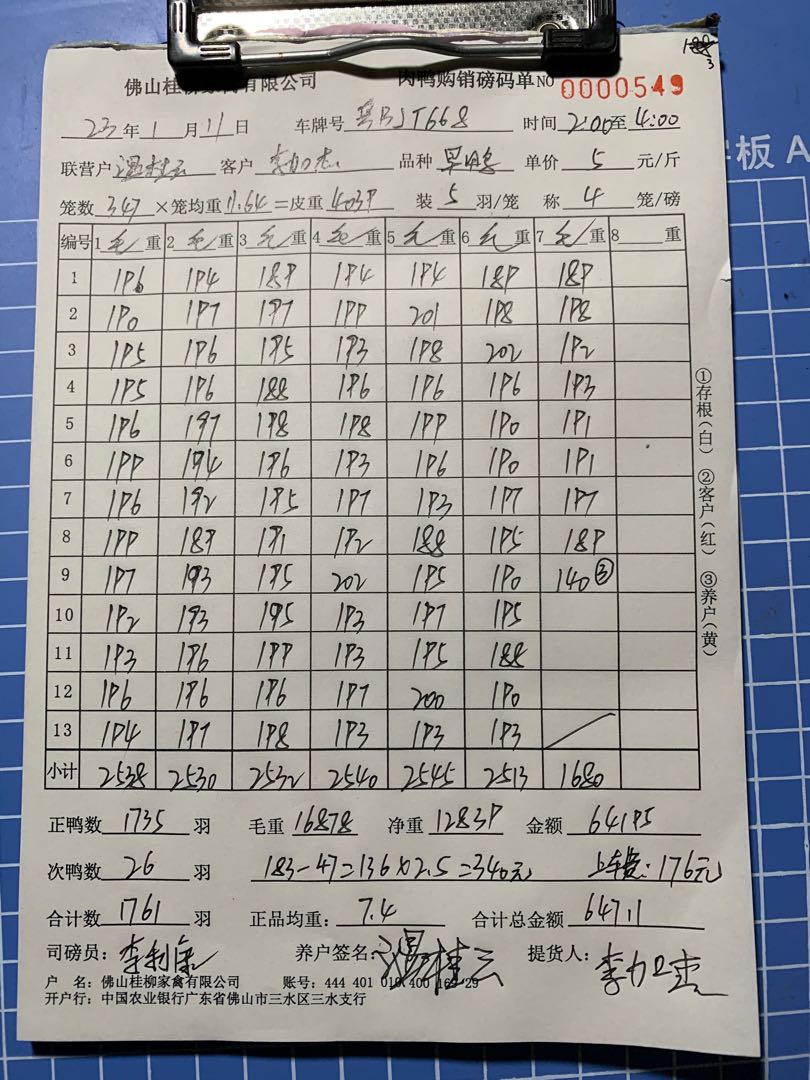 188
3
佛山桂柳家禽有限公司 肉鸭购销磅码单 NO 0000549
23年1月11日 车牌号 粤BJT668 时间 2:00至4:00
联营户 温桂云 客户 品种 单价 5 元/斤
笼数 347 ×笼均重 11.64 =皮重 4039 装 5 羽/笼 称 4 笼/磅
编号 1 毛重 2 毛重 3 毛重 4 毛重 5 毛重 6 毛重 7 毛重 8 重
1 196 194 189 194 194 189 189
2 190 197 197 199 201 198 198
3 195 196 195 193 198 202 192
4 195 196 188 196 196 196 193
5 196 197 198 198 199 190 191
6 199 194 196 193 196 190 191
7 196 192 195 197 193 197 197
8 199 189 191 192 188 195 189
9 197 193 195 202 195 190 140③
10 192 193 195 193 197 195
11 193 196 199 193 195 188
12 196 196 196 197 200 190
13 194 197 198 193 193 193
小计 2538 2530 2532 2540 2545 2513 1680
①存根(白) ②客户(红) ③养户(黄)
正鸭数 1735 羽 毛重 16878 净重 12839 金额 64195
次鸭数 26 羽 183-47=136×2.5=340元 上车费:176元
合计数 1761 羽 正品均重: 7.4 合计总金额 64711
司磅员: 养户签名: 温桂云 提货人:
户 名: 佛山桂柳家禽有限公司 账号: 444 401 010 400 16 29
开户行: 中国农业银行广东省佛山市三水区三水支行
板 A